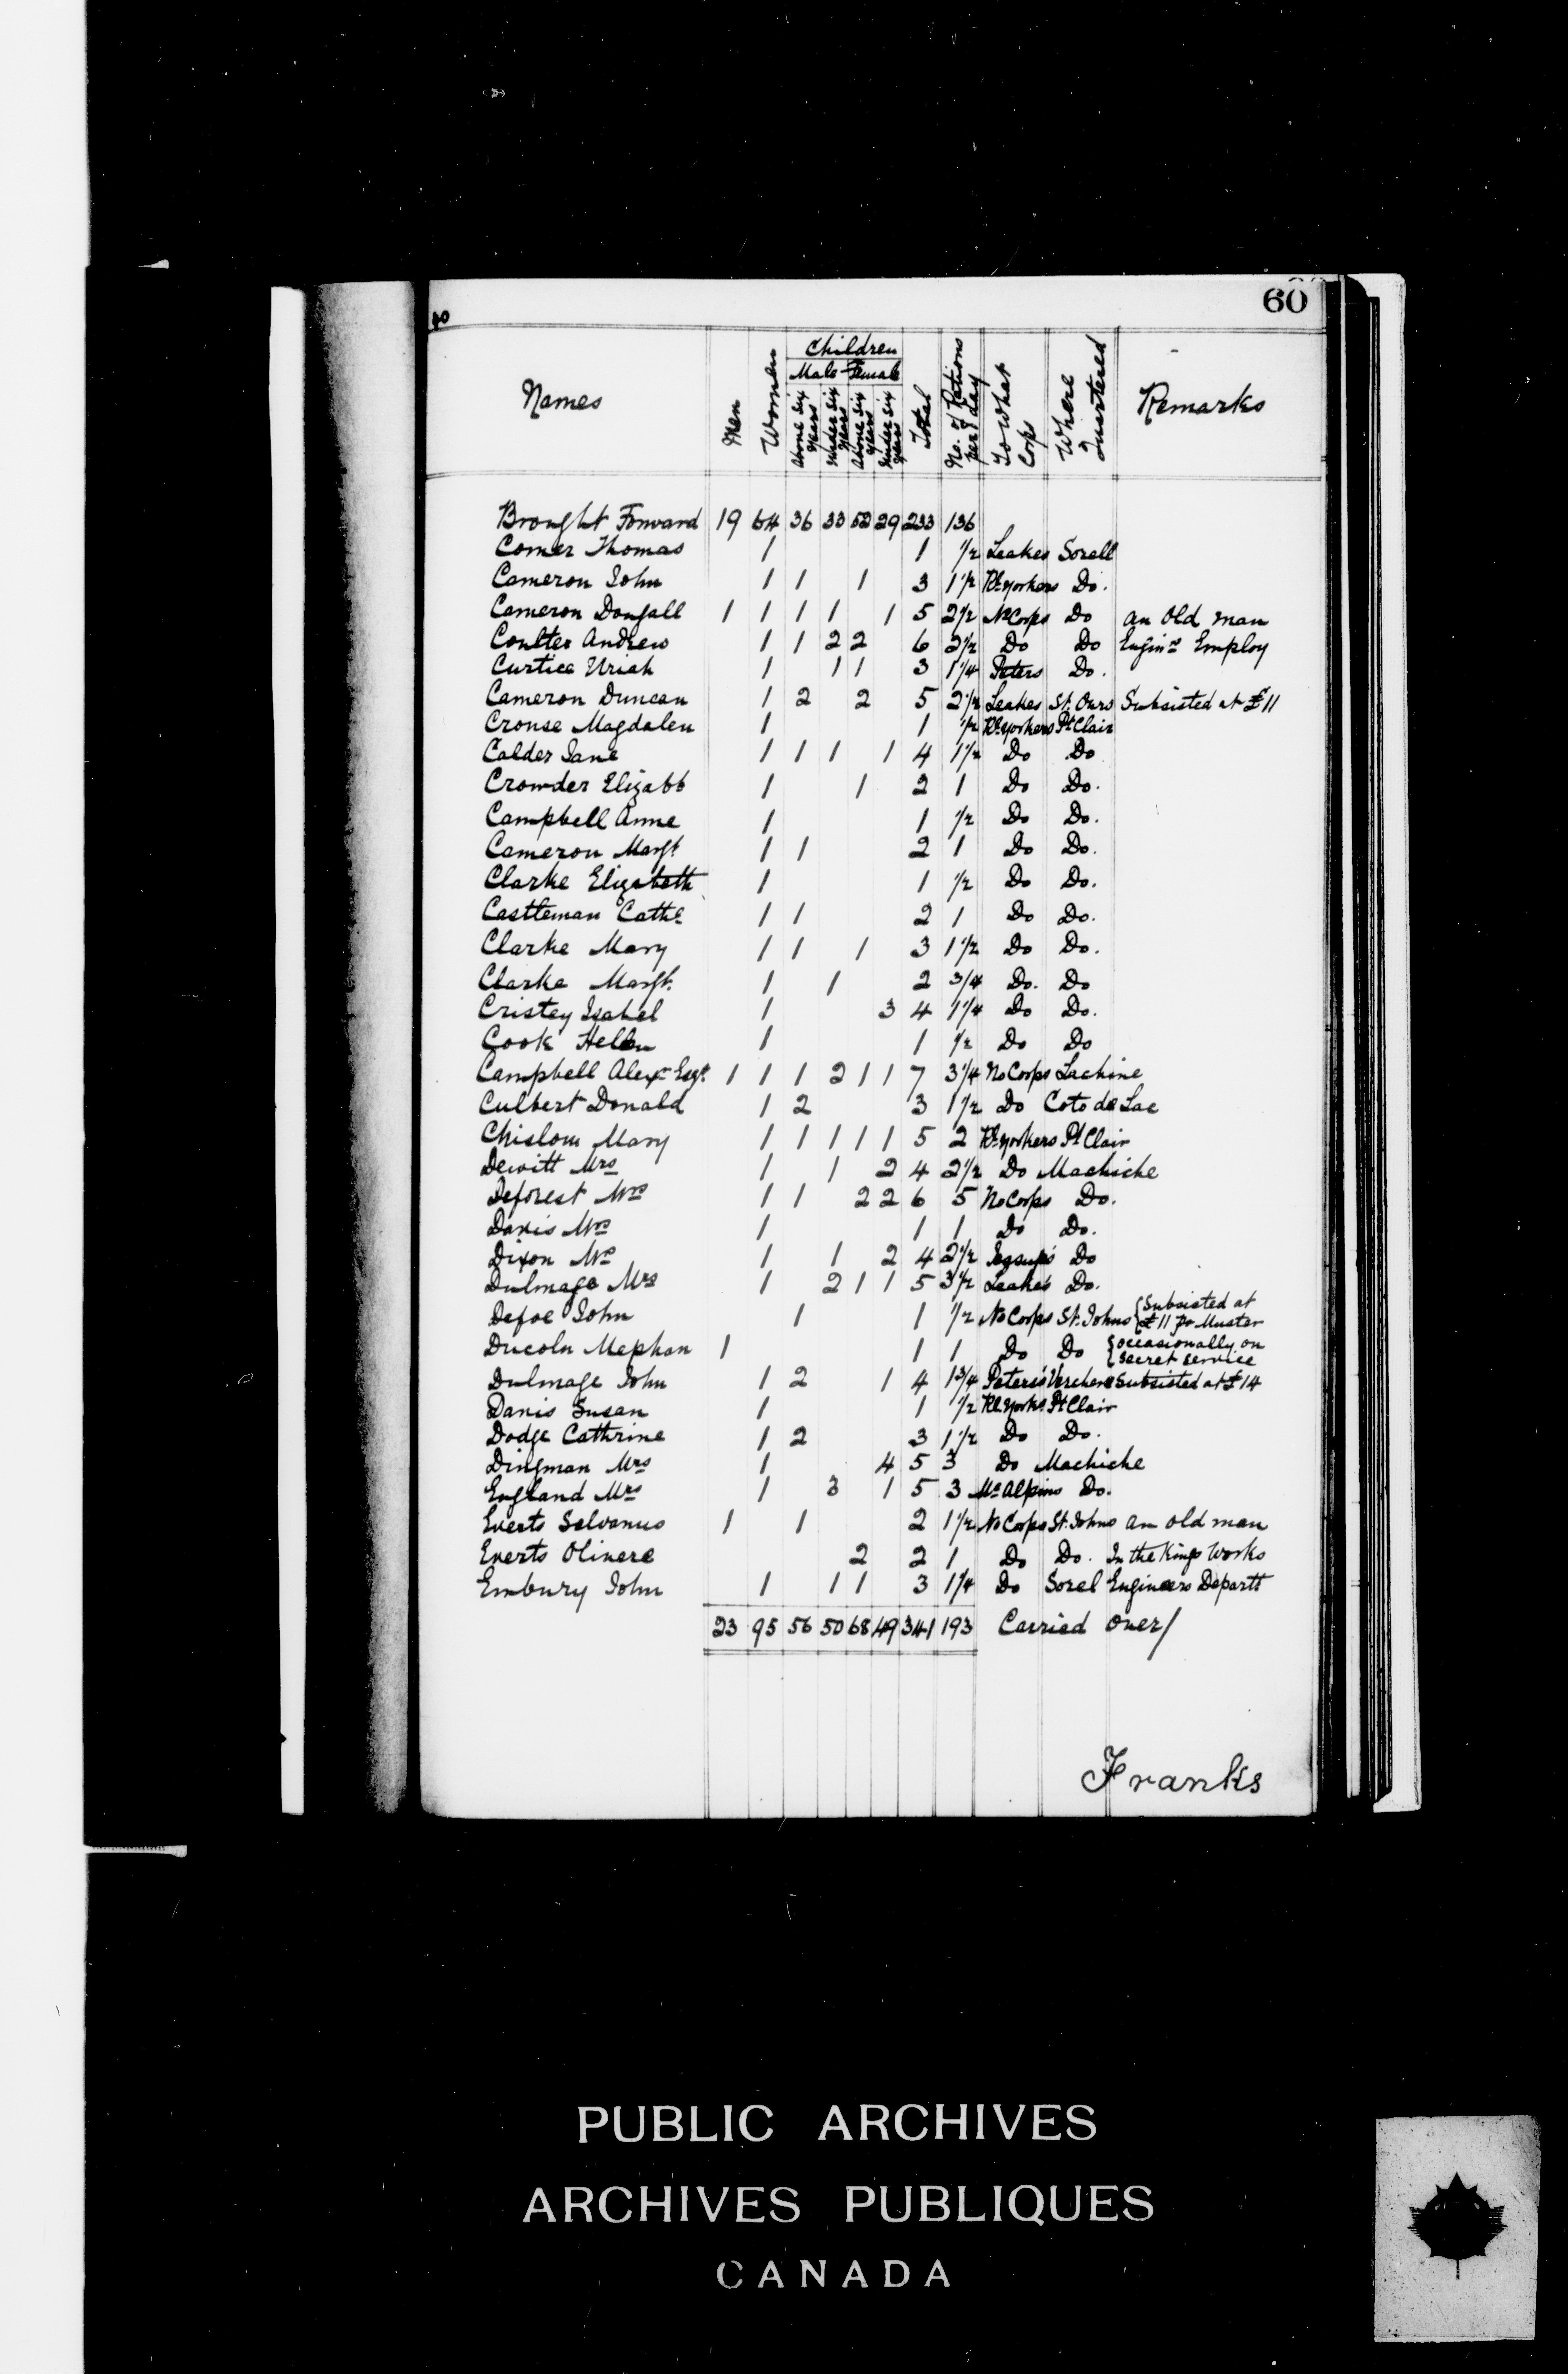 60
40
Names
Men
Women
Children
Male Female
Above Six Years
Under Six Years
Above Six Years
Under Six Years
Total
No. of Rations per day
To What Corps
Where Quartered
Remarks
Brought Forward 19 64 36 33 52 29 233 136
Comer Thomas 1 1 1/2 Leakes Sorell
Cameron John 1 1 1 3 1 1/2 Rl. Yorkers Do.
Cameron Dougall 1 1 1 1 1 5 2 1/2 No Corps Do an Old man
Coulter Andrew 1 1 2 2 6 2 1/2 Do Do Enginrs Employ
Curtice Uriah 1 1 1 3 1 1/4 Peters Do.
Cameron Duncan 1 2 2 5 2 1/2 Leakes St. Ours Subsisted at £11
Crouse Magdalen 1 1 1/2 Rl. Yorkers Pt Clair
Calder Jane 1 1 1 1 4 1 1/2 Do Do
Crowder Elizabb 1 1 2 1 Do Do.
Campbell Anne 1 1 1/2 Do Do.
Cameron Margt. 1 1 2 1 Do Do.
Clarke Elizabeth 1 1 1/2 Do Do.
Castleman Cathe 1 1 2 1 Do Do.
Clarke Mary 1 1 1 3 1 1/2 Do Do.
Clarke Margt. 1 1 2 3/4 Do. Do
Cristey Isabel 1 3 4 1 1/4 Do Do.
Cook Hellen 1 1 1/2 Do Do
Campbell Alexr Esqr. 1 1 1 2 1 1 7 3 1/4 No Corps Lachine
Culbert Donald 1 2 3 1 1/2 Do Coto de Lac
Chislom Mary 1 1 1 1 1 5 2 Rl. Yorkers Pt Clair
Dewitt Mrs 1 1 2 4 2 1/2 Do Machiche
Deforest Mrs 1 1 2 2 6 5 No Corps Do.
Davis Mrs 1 1 1 Do Do.
Dixon Mrs 1 1 2 4 2 1/2 Jessup's Do
Dulmage Mrs 1 2 1 1 5 3 1/2 Leake's Do.
Defoe John 1 1 1/2 No Corps St. Johns {Subsisted at £11 pr Muster
Ducoln Mephan 1 1 1 Do Do {occasionally on Secret Service
Dulmage John 1 2 1 4 1 3/4 Peters's Verchere Subsisted at £14
Danis Susan 1 1 1/2 Rl. Yorks. Pt Clair
Dodge Cathrine 1 2 3 1 1/2 Do Do.
Dingman Mrs 1 4 5 3 Do Machiche
England Mrs 1 3 1 5 3 McAlpins Do.
Everts Selvanus 1 1 2 1 1/2 No Corps St. Johns an old man
Everts Olivere 2 2 1 Do Do. In the Kings Works
Embury John 1 1 1 3 1 1/4 Do Sorel Engineers Departt
23 95 56 50 68 49 341 193 Carried over/
Franks
PUBLIC ARCHIVES
ARCHIVES PUBLIQUES
CANADA